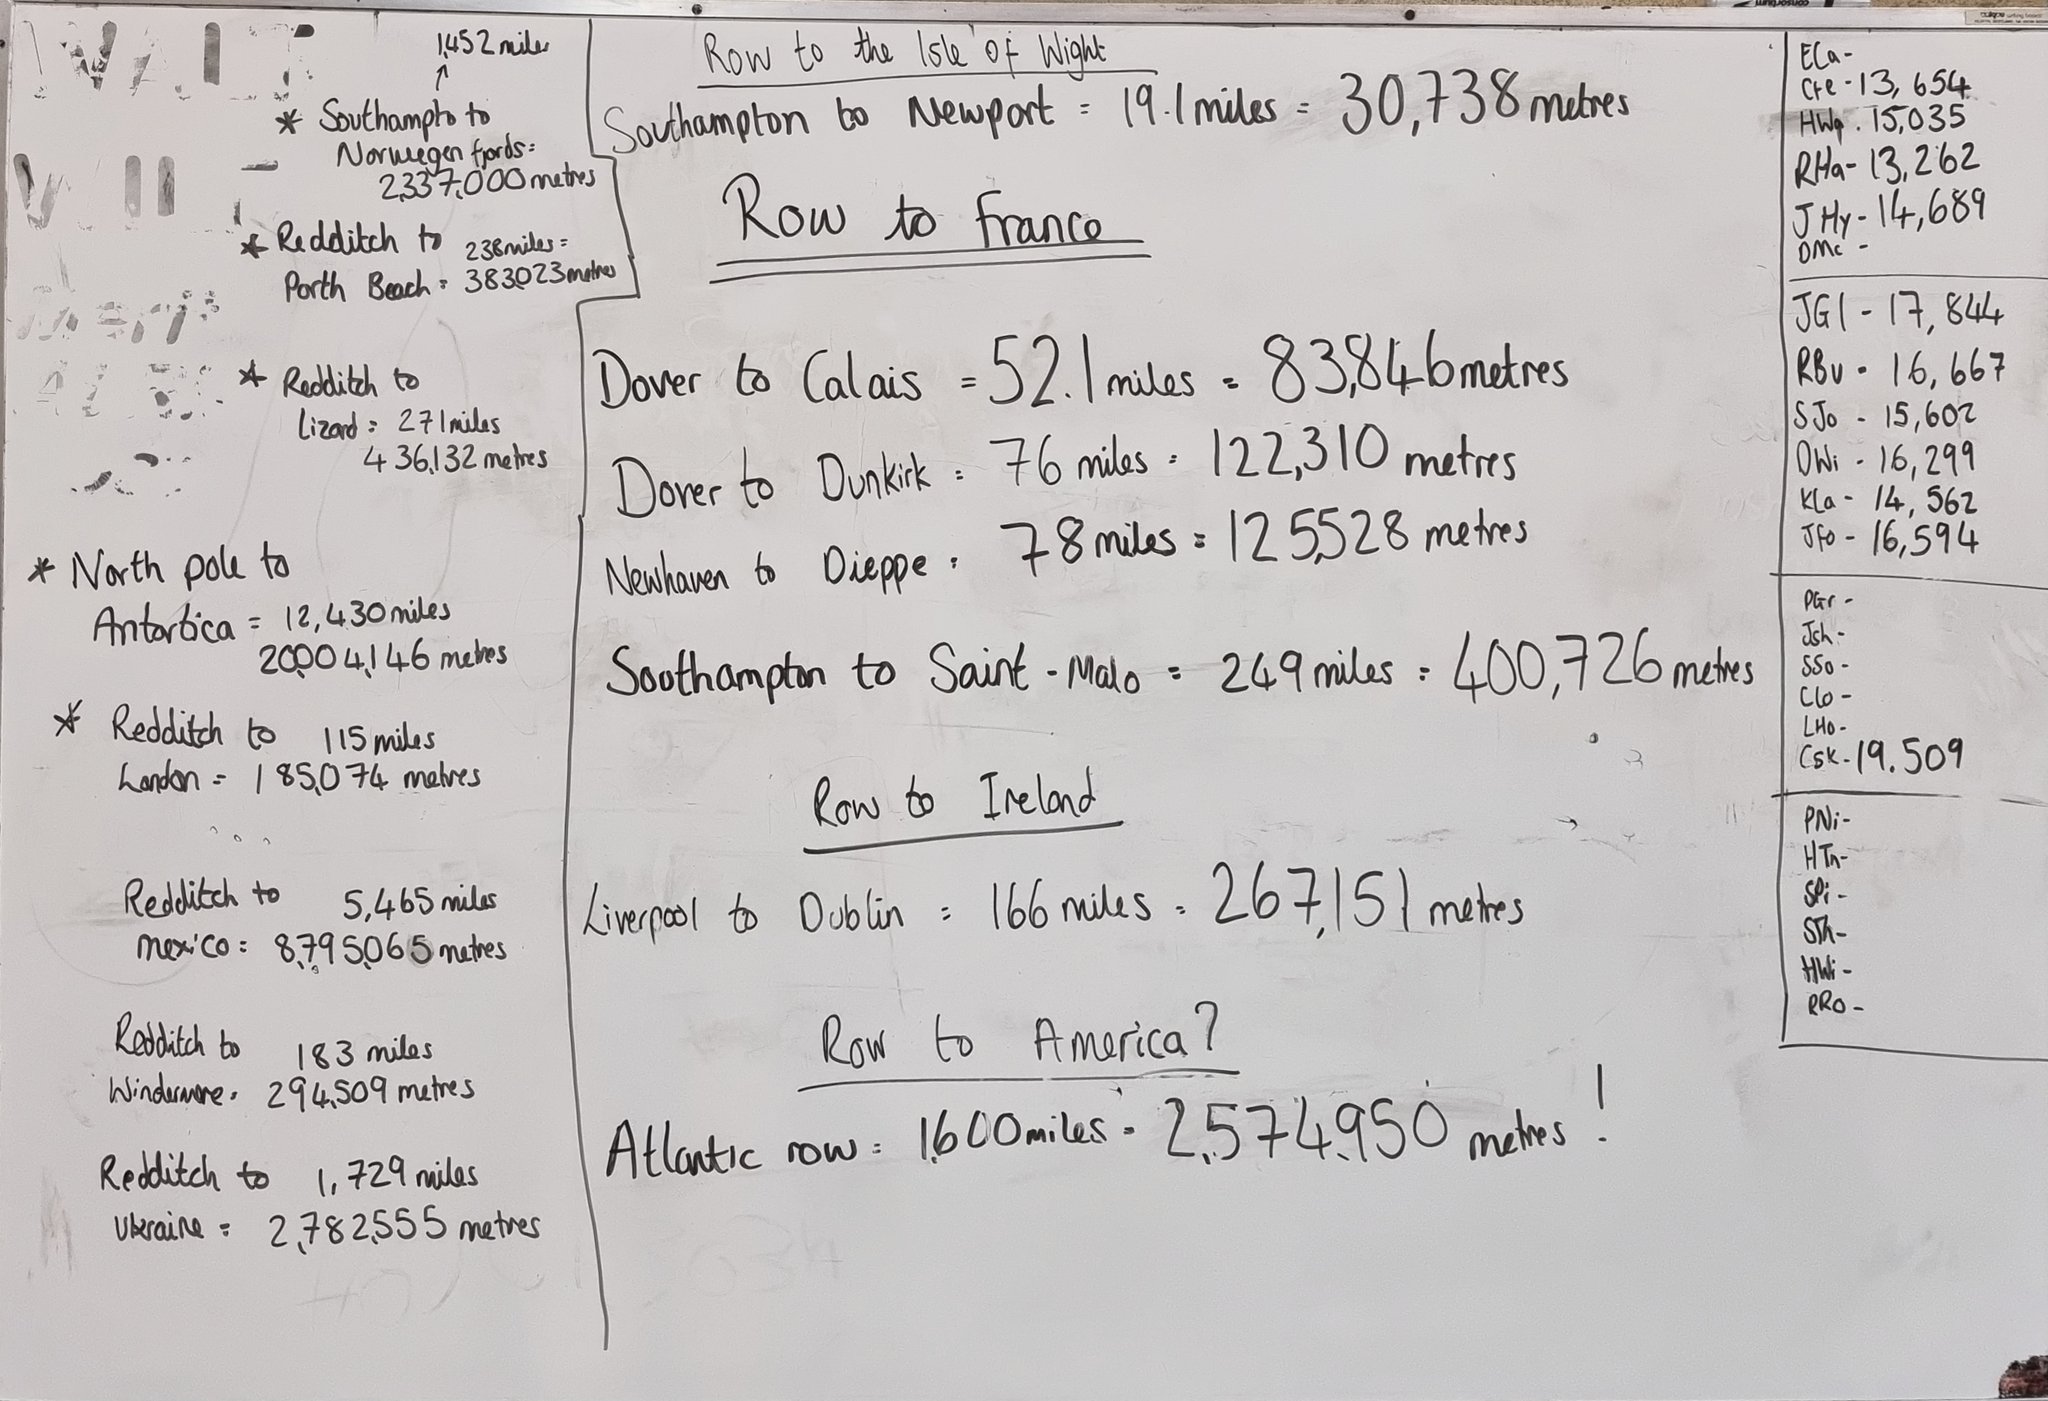 1,452 miles
* Southampto to
Norwegen fjords =
2,337,000 metres
* Redditch to 238 miles =
Porth Beach = 383,023 metres
* Redditch to
Lizard = 271 miles
436,132 metres
* North pole to
Antartica = 12,430 miles
20,004,146 metres
* Redditch to 115 miles
London = 185,074 metres
Redditch to 5,465 miles
Mexico = 8,795,065 metres
Redditch to 183 miles
Windermere = 294,509 metres
Redditch to 1,729 miles
Ukraine = 2,782,555 metres
Row to the Isle of Wight
Southampton to Newport = 19.1 miles = 30,738 metres
Row to France
Dover to Calais = 52.1 miles = 83,846 metres
Dover to Dunkirk = 76 miles = 122,310 metres
Newhaven to Dieppe = 78 miles = 125,528 metres
Southampton to Saint-Malo = 249 miles = 400,726 metres
Row to Ireland
Liverpool to Dublin = 166 miles = 267,151 metres
Row to America?
Atlantic row = 1,600 miles = 2,574,950 metres!
ECa -
Cre - 13,654
HWq . 15,035
RHa - 13,262
JHy - 14,689
DMc -
JGl - 17,844
RBu - 16,667
SJo - 15,602
OWi - 16,299
KLa - 14,562
JFo - 16,594
PGr -
Jsh -
SSo -
Clo -
LHo -
CSK - 19.509
PNi -
HTn -
SPi -
STh -
HWi -
RRo -